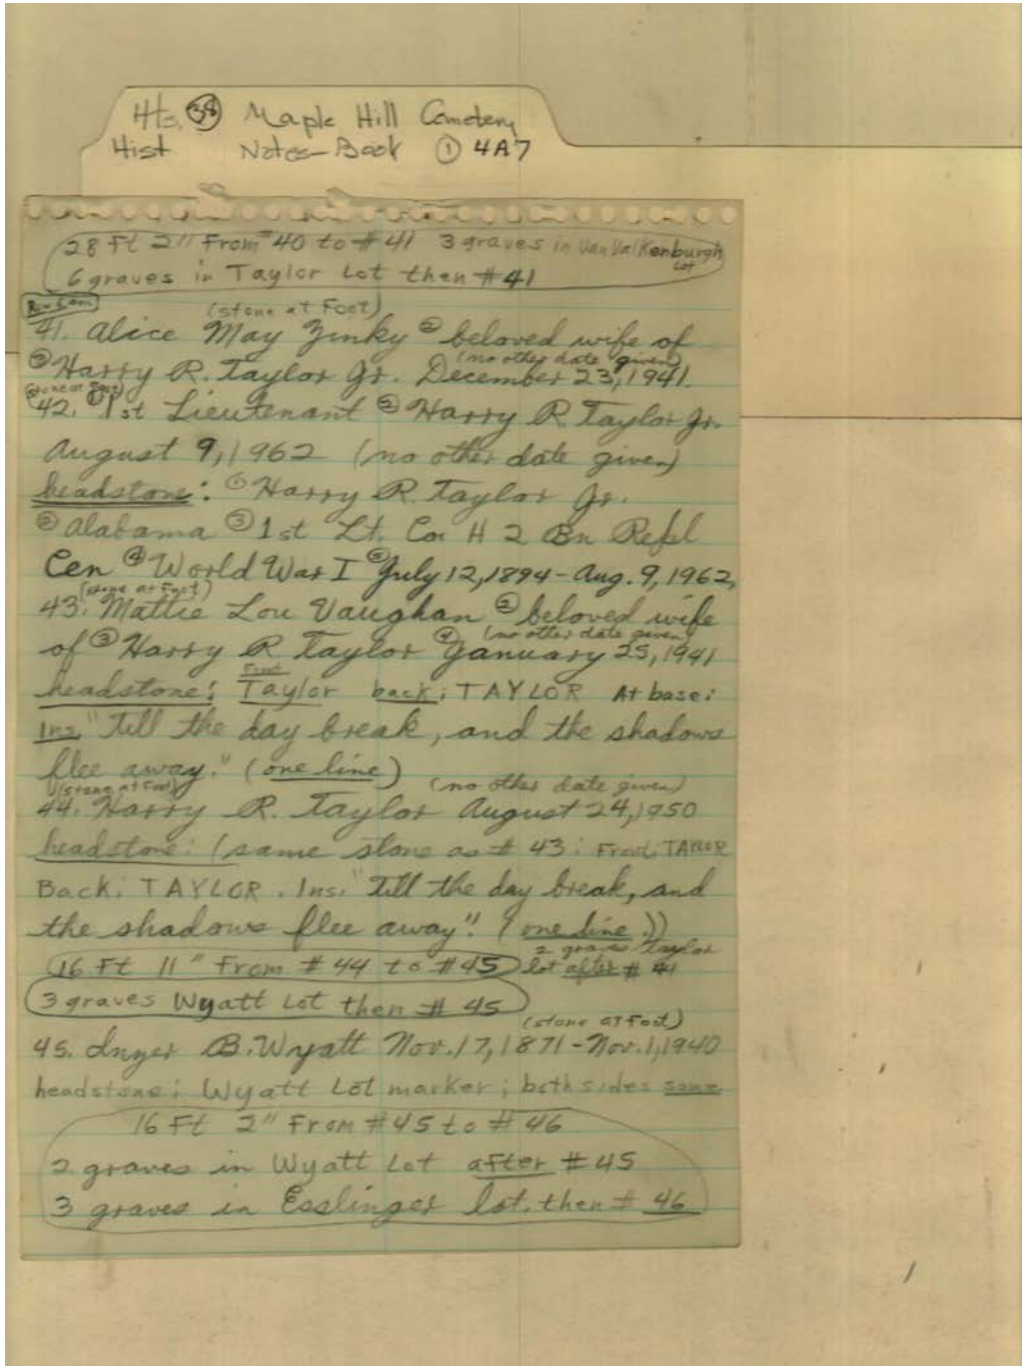 Hts. 38 Maple Hill Cemetery
Hist Notes-Book ① 4A7
28 Ft 2" From #40 to #41 3 graves in Van Valkenburgh
Lot
6 graves in Taylor Lot then #41
(stone at Foot)
41. Alice May Zinky ② beloved wife of
(no other date given)
③ Harry R. Taylor Jr. December 23, 1941.
(stone at Foot)
42. ① 1st Lieutenant ② Harry R Taylor Jr.
August 9, 1962 (no other date given)
headstone: ① Harry R Taylor Jr.
② Alabama ③ 1st Lt. Co H 2 Bn Repl
Cen ④ World War I ⑤ July 12, 1894 - Aug. 9, 1962,
(stone at Foot)
43. Mattie Lou Vaughan ② beloved wife
(no other date given)
of ③ Harry R Taylor ④ January 25, 1941
Front
headstone: Taylor back: TAYLOR At base:
Ins. "Till the day break, and the shadows
flee away." (one line)
(stone at Foot) (no other date given)
44. Harry R. Taylor August 24, 1950
headstone: (same stone as # 43: Front: TAYLOR
Back: TAYLOR. Ins. "Till the day break, and
the shadows flee away". (one line.))
2 graves Taylor
16 Ft 11" From #44 to #45 lot after # 44
3 graves Wyatt Lot then # 45
(stone at Foot)
45. Inzer B. Wyatt Nov. 17, 1871 - Nov. 1, 1940
headstone: Wyatt Lot marker; both sides same
16 Ft 2" From #45 to # 46
2 graves in Wyatt Lot after #45
3 graves in Esslinger lot. then # 46